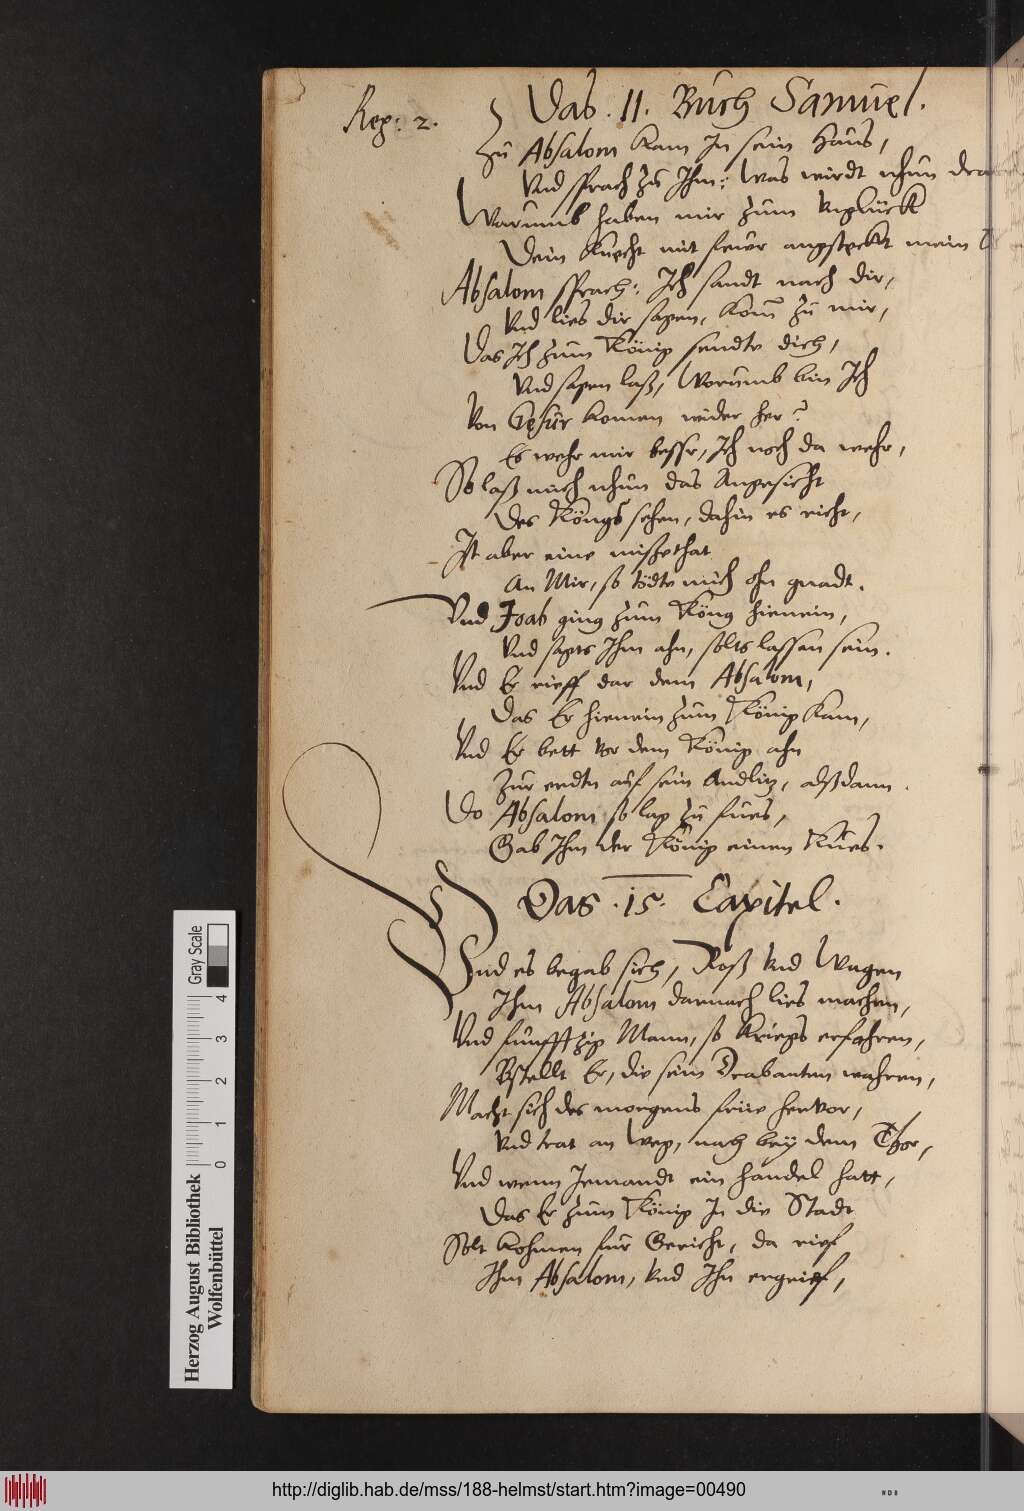 Reg: 2.
Das. II. Buch Samuel.
Zu Absalom kam In sein Haus,
Vnd sprach zu Ihm: Was wirdt nhun
Warumb haben mir zum vnglück
Dein Knecht mit feuer angsteckt mein
Absalom sprach: Ich sandt nach dir,
Vnd lies dir sagen, kom zu mir,
Das Ich zum König sendte dich,
Vnd sagen laß, Worumb bin Ich
Von Gesur komen wider her?
Es wehr mir bessr, Ich noch da wehr,
So laß mich nhun das Angesicht
Des Köngs sehen, dahin es richt,
Ist aber eine missethat
An Mir, so tödte mich ohn gnadt.
Vnd Joab ging zum Köng hienein,
Vnd sagts Ihm ahn, solts lassen sein.
Vnd Er rieff dar dem Absalom,
Das Er hienein zum König kam,
Vnd Er bett vor dem König ahn
Zur erdtn auf sein Andlitz, alßdann.
Do Absalom so lag zu fues,
Gab Ihm der König einen Kues.
Das .15. Capitel.
Vnd es begab sich, Roß vnd Wagen
Ihm Absalom darnach lies machen,
Vnd funfftzig Mann, so kriegs erfahren,
Bstellt Er, die sein Drabanten wahren,
Macht sich des morgens früe hervor,
Vnd trat an Weg, nach bey dem Thor,
Vnd wenn Jemandt ein handel hatt,
Das Er zum König In die Stadt
Solt kohmen fur Gericht, da rief
Ihm Absalom, vnd Ihn ergrief,
Gray Scale
0 1 2 3 4
Herzog August Bibliothek
Wolfenbüttel
http://diglib.hab.de/mss/188-helmst/start.htm?image=00490
WDB